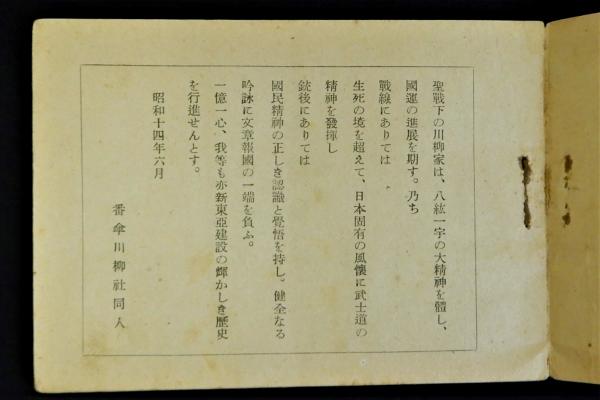 聖戰下の川柳家は、八紘一宇の大精神を體し、
國運の進展を期す。乃ち
戰線にありては
生死の境を超えて、日本固有の風懷に武士道の
精神を發揮し
銃後にありては
國民精神の正しき認識と覺悟を持し。健全なる
吟詠に文章報國の一端を負ふ。
一億一心、我等も亦新東亞建設の輝かしき歷史
を行進せんとす。
昭和十四年六月
番傘川柳社同人